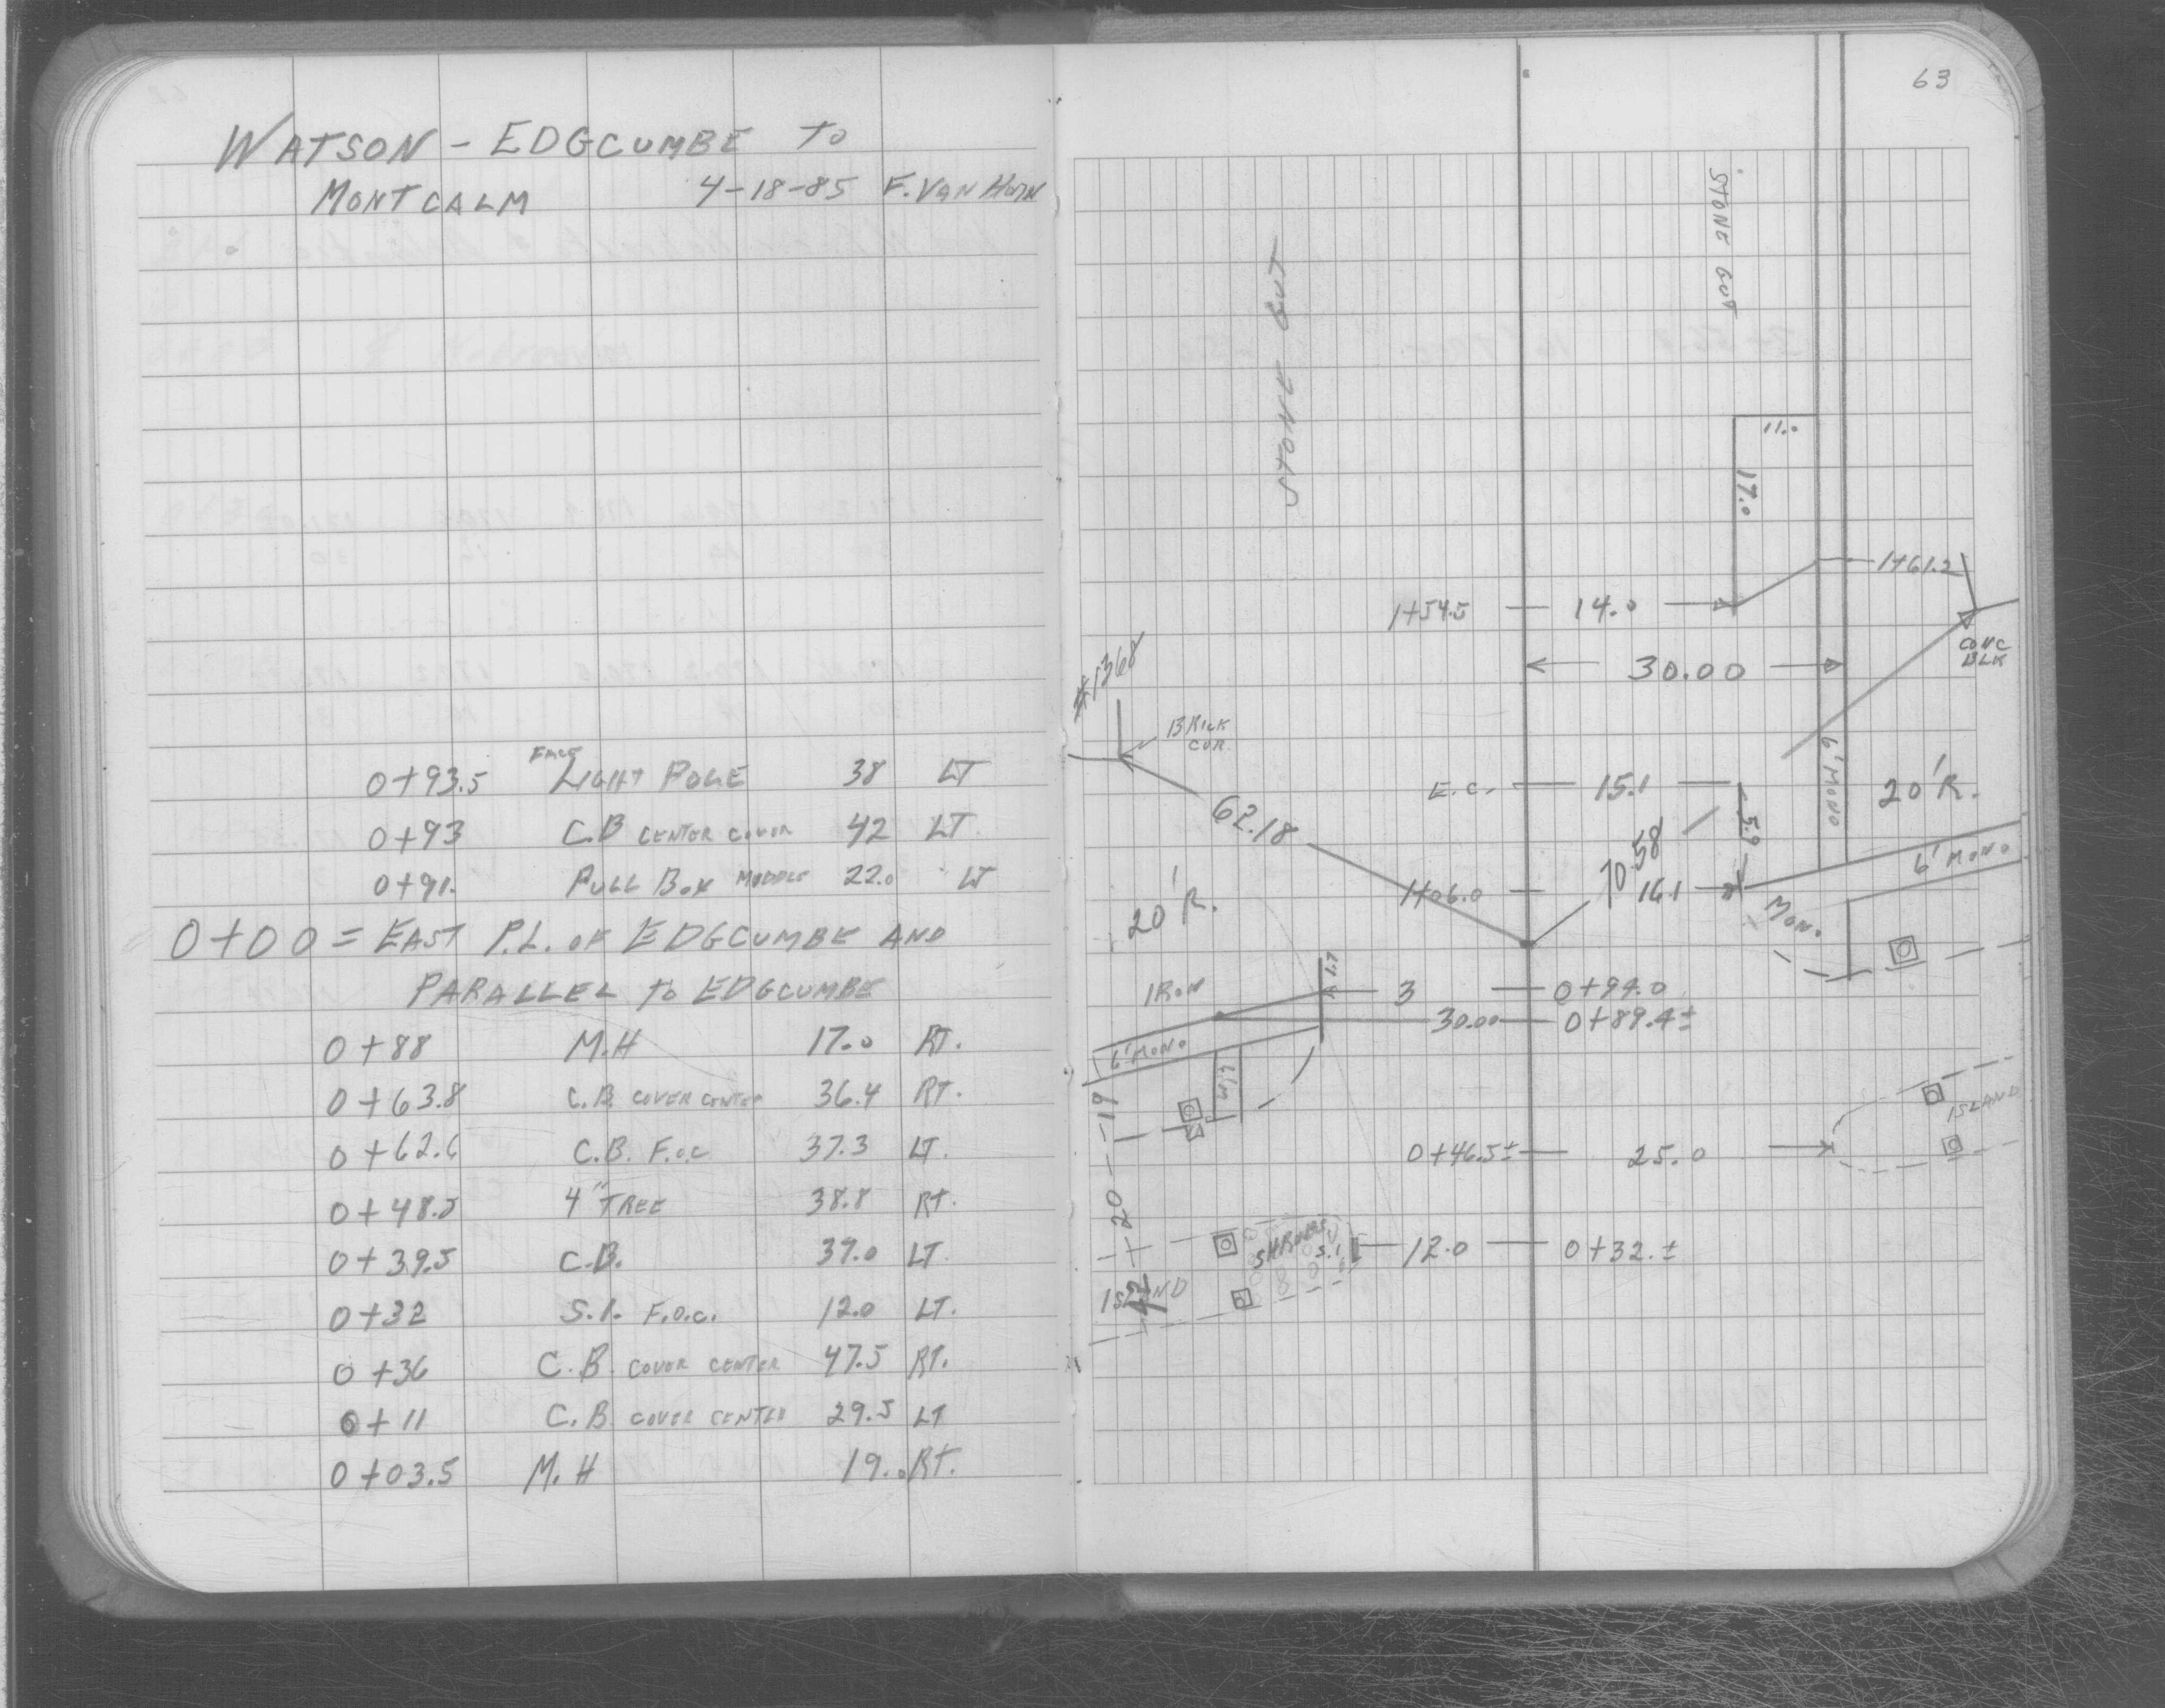 WATSON - EDGCUMBE TO
MONTCALM 4-18-85 F. VAN HORN
0+93.5 FACE LIGHT POLE 38 LT
0+93 C.B CENTER COVER 42 LT.
0+91. PULL BOX MIDDLE 22.0 LT
0+00 = EAST P.L. OF EDGCUMBE AND
PARALLEL TO EDGCUMBE
0+88 M.H 17.0 RT.
0+63.8 C.B. COVER CENTER 36.4 RT.
0+62.6 C.B. F.O.C 37.3 LT.
0+48.5 4" TREE 38.8 RT.
0+39.5 C.B. 37.0 LT.
0+32 S.I. F.O.C. 12.0 LT.
0+36 C.B. COVER CENTER 47.5 RT.
0+11 C.B. COVER CENTER 29.5 LT
0+03.5 M.H 19.0 RT.
63
STONE GUT
STONE GUT
11.0
17.0
1+61.2
1+54.5 14.0
CONC
BLK
30.00
#1368
BRICK
COR.
6' MONO
E.C. 15.1
20' R.
5.9
62.18
70.58
6' MONO
1+06.0 16.1
20' R.
MON.
1.7
IRON
3 0+94.0
30.00 0+89.4±
6' MONO
6' M
19
ISLAND
0+46.5± 25.0
20
SHRUBS
S.I. 12.0 0+32.±
ISLAND